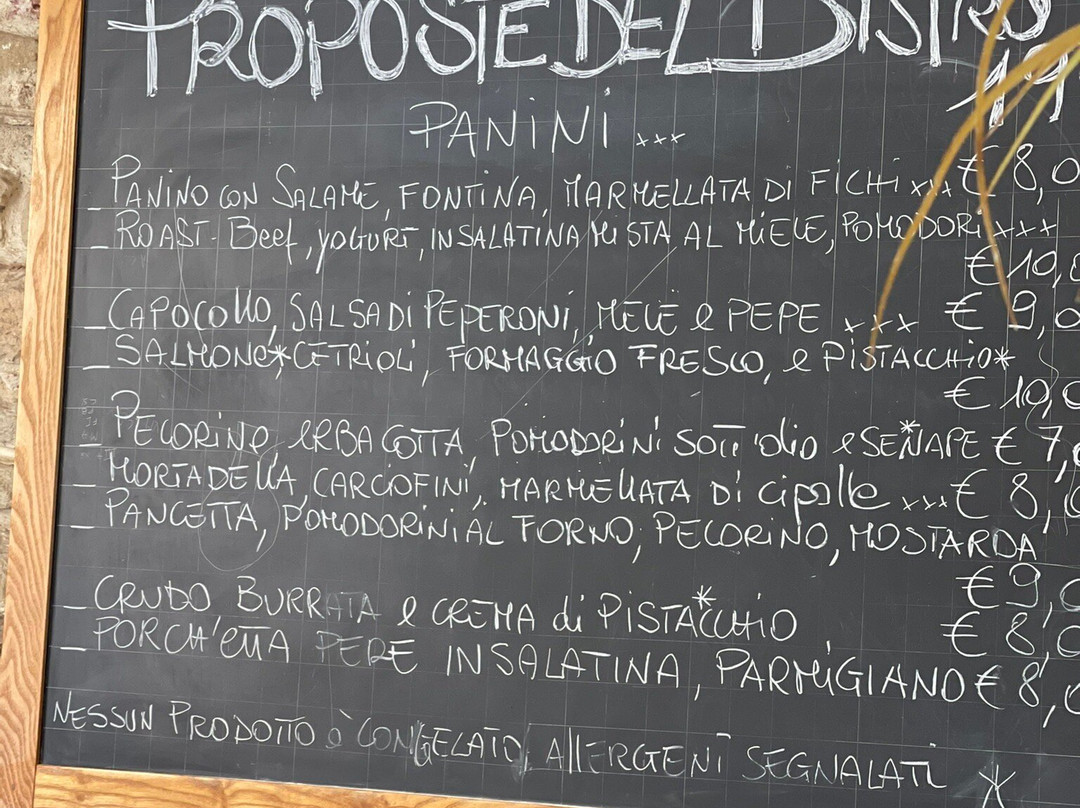 PROPOSTE DEL BISTRO
19
PANINI xxx
_ PANINO CON SALAME, FONTINA, MARMELLATA DI FICHI xxx € 8,0
_ ROAST-Beef, yogurt, INSALATINA MISTA AL MIELE, POMODORI xxx
€ 10,
_ CAPOCOllO, SALSA DI PEPERONI, MELE e PEPE xxx € 9,0
_ SALMONE* CETRIOLI, FORMAGGIO FRESCO, e PISTACCHIO*
€ 10,0
_ PECORINO, ERBA COTTA, POMODORINI SOTT'OLIO e SENAPE* € 7,
_ MORTADELLA, CARCIOFINI, MARMELLATA DI Cipolle xxx € 8,
_ PANCETTA, POMODORINI AL FORNO, PECORINO, MOSTARDA
€ 9,0
_ CRUDO BURRATA e CREMA di PISTACCHIO* € 8,0
_ PORCH'ETTA PERE INSALATINA, PARMIGIANO € 8,
NESSUN PRODOTTO è CONGELATO, ALLERGENI SEGNALATI *